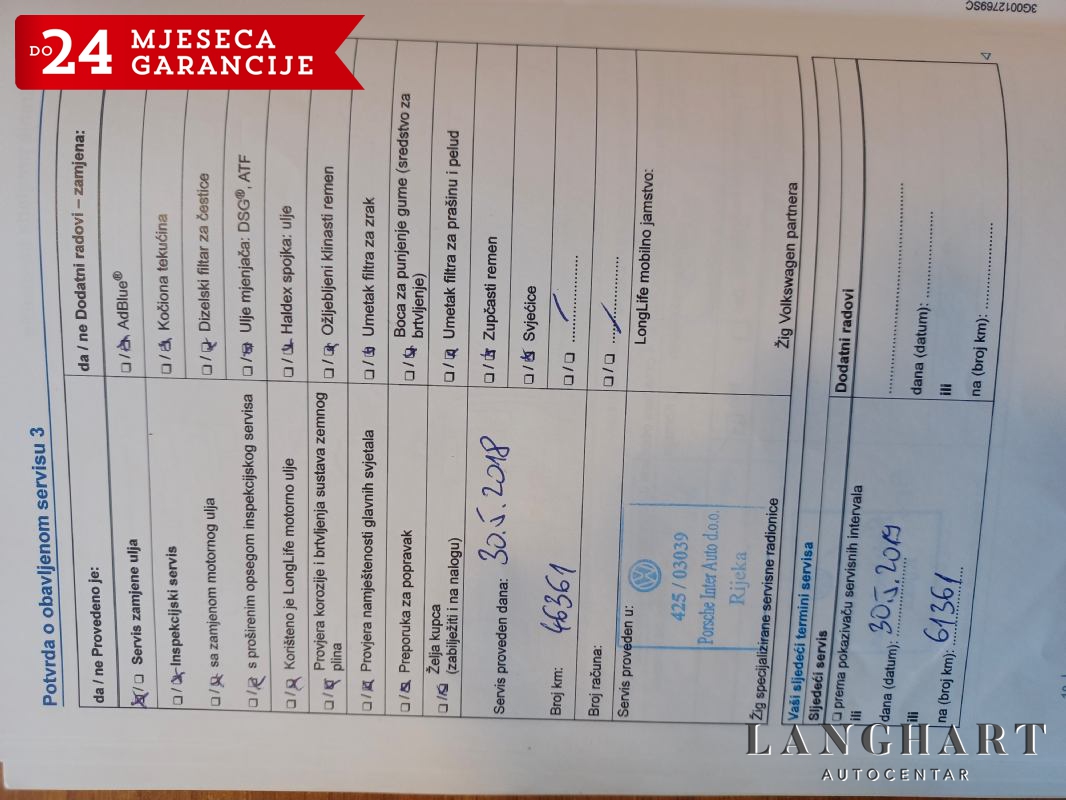 DO 24 MJESECA
GARANCIJE
3G0012769SC
Potvrda o obavljenom servisu 3
da / ne Provedeno je:
☒/☐ Servis zamjene ulja
☐/☒ Inspekcijski servis
☐/☒ sa zamjenom motornog ulja
☐/☒ s proširenim opsegom inspekcijskog servisa
☐/☒ Korišteno je LongLife motorno ulje
☐/☒ Provjera korozije i brtvljenja sustava zemnog
plina
☐/☒ Provjera namještenosti glavnih svjetala
☐/☒ Preporuka za popravak
☐/☒ Želja kupca
(zabilježiti i na nalogu)
Servis proveden dana: 30.5.2018
Broj km: 46361
Broj računa:
Servis proveden u:
425 / 03039
Porsche Inter Auto d.o.o.
Rijeka
Žig specijalizirane servisne radionice
da / ne Dodatni radovi – zamjena:
☐/☒ AdBlue®
☐/☒ Kočiona tekućina
☐/☒ Dizelski filtar za čestice
☐/☒ Ulje mjenjača: DSG®, ATF
☐/☒ Haldex spojka: ulje
☐/☒ Ožljebljeni klinasti remen
☐/☒ Umetak filtra za zrak
☐/☒ Boca za punjenje gume (sredstvo za
brtvljenje)
☐/☒ Umetak filtra za prašinu i pelud
☐/☒ Zupčasti remen
☐/☒ Svjećice
☐/☐ ....................
☐/☐ ....................
LongLife mobilno jamstvo:
Žig Volkswagen partnera
Vaši sljedeći termini servisa
Sljedeći servis
☐ prema pokazivaču servisnih intervala
ili
dana (datum): 30.5.2019
ili
na (broj km): 61361
Dodatni radovi
........................................
dana (datum): ....................
ili
na (broj km): ....................
LANGHART
AUTOCENTAR